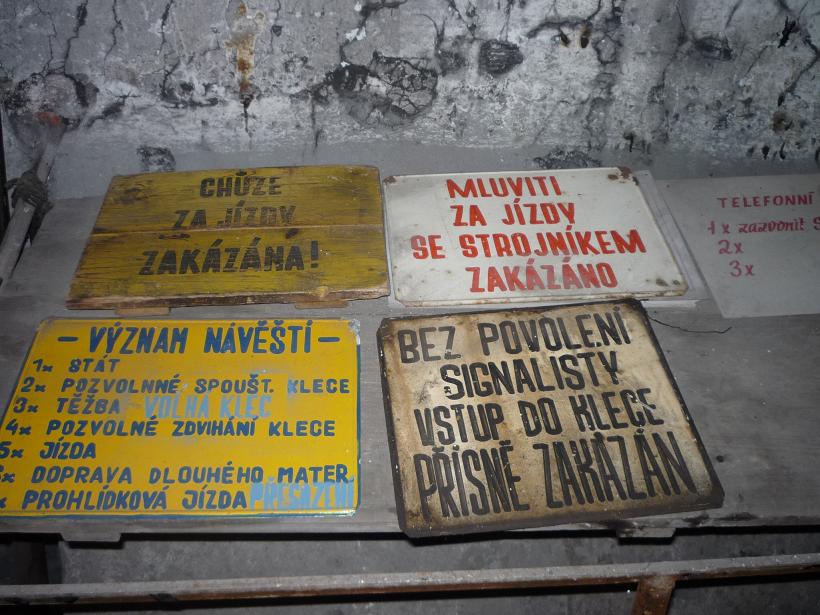 CHŮZE
ZA JÍZDY
ZAKÁZÁNA!
MLUVITI
ZA JÍZDY
SE STROJNÍKEM
ZAKÁZÁNO
TELEFONNÍ
1x zazvonit
2x
3x
- VÝZNAM NÁVĚŠTÍ -
1x STÁT
2x POZVOLNNÉ SPOUŠT. KLECE
3x TĚŽBA VOLNÁ KLEC
4x POZVOLNÉ ZDVIHÁNÍ KLECE
5x JÍZDA
x DOPRAVA DLOUHÉHO MATER.
x PROHLÍDKOVÁ JÍZDA PŘESAZENÍ
BEZ POVOLENÍ
SIGNALISTY
VSTUP DO KLECE
PŘÍSNĚ ZAKÁZÁN